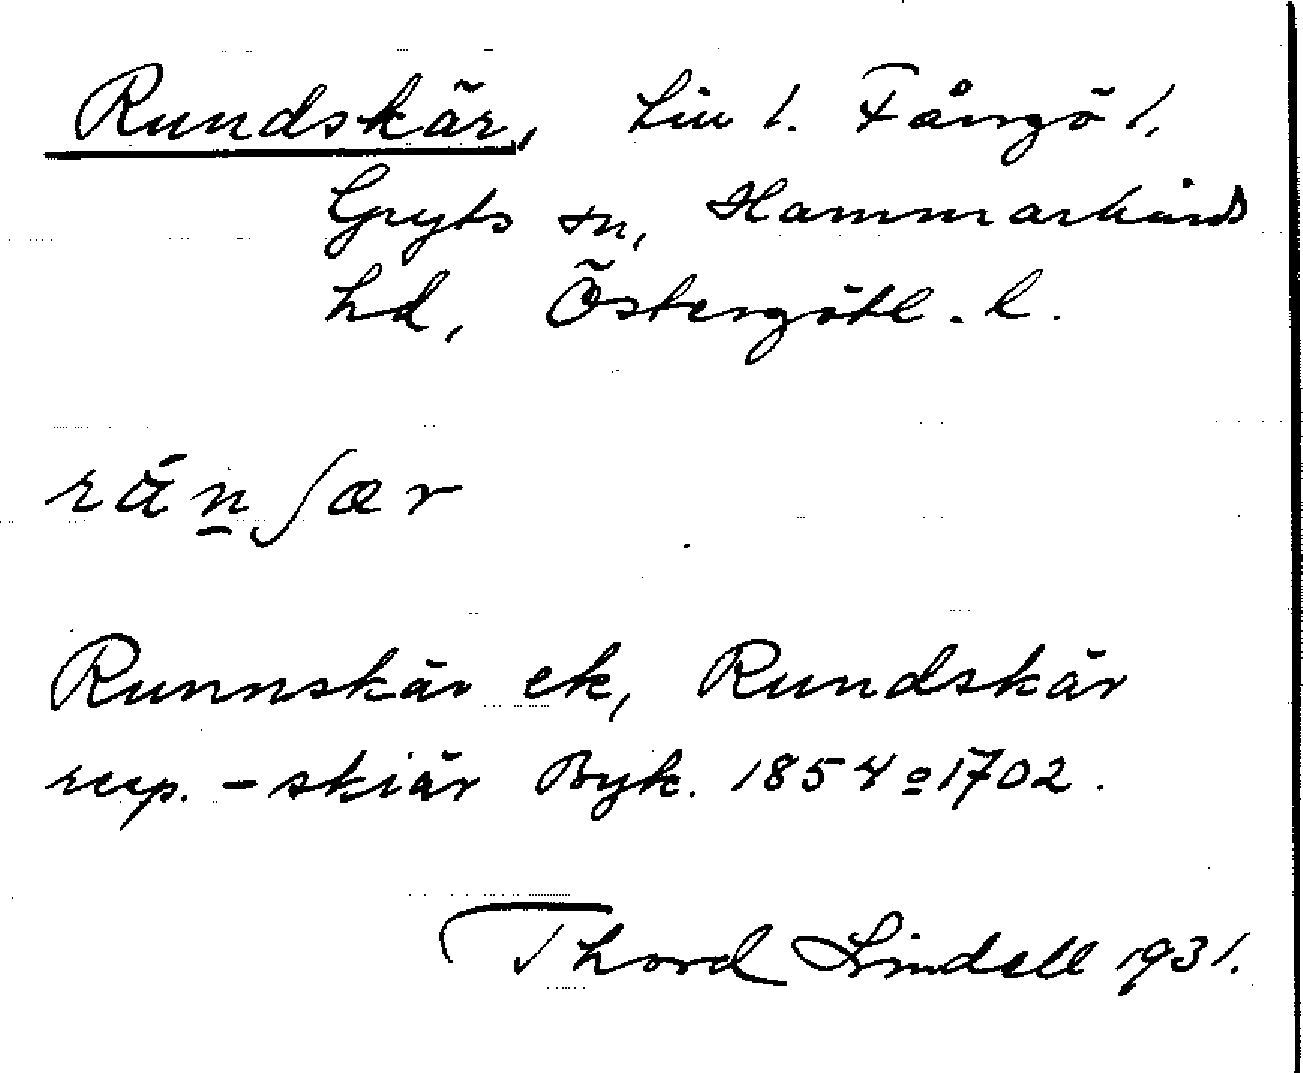 Rundskär, Liu 1. Fångö 1,
Gryts sn, Hammarkinds
hd, Östergötl. l.
rán̲ʃær
Runnskär ek, Rundskär
resp. -skiär Byk. 1854 o 1702.
Thord Lindell 1931.